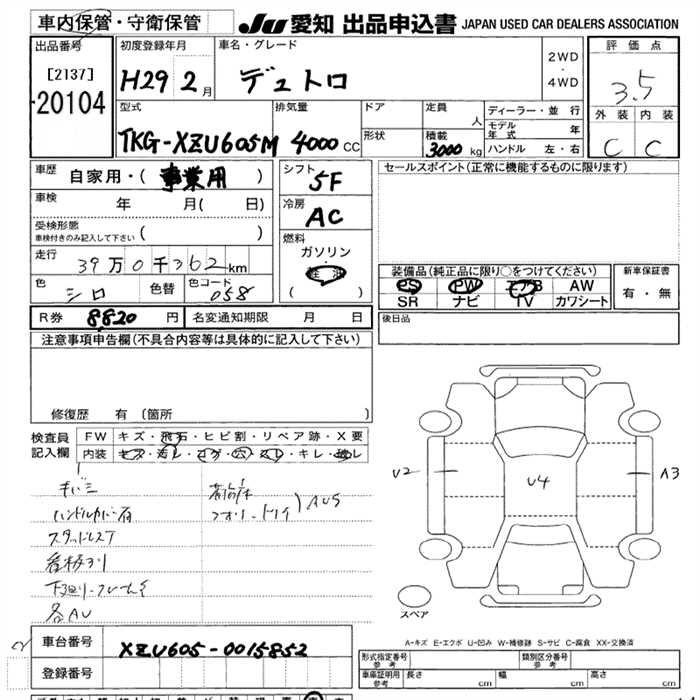 車内保管・守衛保管
JU 愛知 出品申込書 JAPAN USED CAR DEALERS ASSOCIATION
出品番号
[2137]
20104
初度登録年月
H29 2月
車名・グレード
デュトロ
2WD
・
4WD
評価点
3.5
外装 内装
C C
型式
TKG-XZU605M
排気量
4000 CC
ドア
形状
定員
人
積載
3000 kg
ディーラー・並行
モデル年式 年
ハンドル 左・右
車歴
自家用・(事業用)
車検
年 月( 日)
受検形態
車検付きのみ記入して下さい ( )
走行
39万0千362km
色
シロ
色替
色コード
058
シフト
5F
冷房
AC
燃料
ガソリン
( )
セールスポイント(正常に機能するものに限ります)
装備品(純正品に限り○をつけてください)
PS PW エアB AW
SR ナビ TV カワシート
新車保証書
有・無
R券 8,820 円
名変通知期限 月 日
後日品
注意事項申告欄(不具合内容等は具体的に記入して下さい)
修復歴 有 (箇所 )
検査員記入欄
FW キズ・飛石・ヒビ割・リペア跡・X要
内装 キズ・汚レ・コゲ・穴・スレ・キレ・破レ
キバミ
ハンドルカバー有
スタッドレス
看板ヨリ
下廻リ・フレームサ
各AU
AUS
U2
U4
A3
スペア
A-キズ E-エクボ U-凹み W-補修跡 S-サビ C-腐食 XX-交換済
車台番号 XZU605-0015852
登録番号
形式指定番号 参考
類別区分番号 参考
車庫証明用 参考
長さ cm 幅 cm 高さ cm